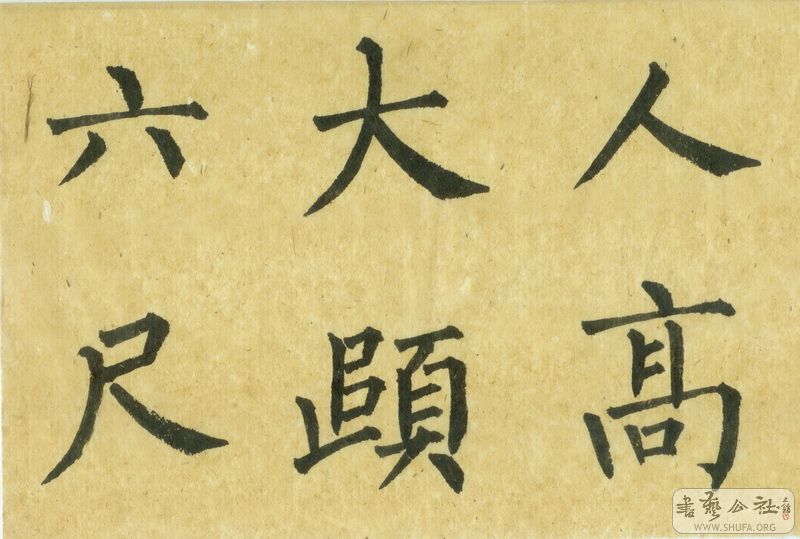 人髙
大頥
六尺
書藝公社
WWW.SHUFA.ORG